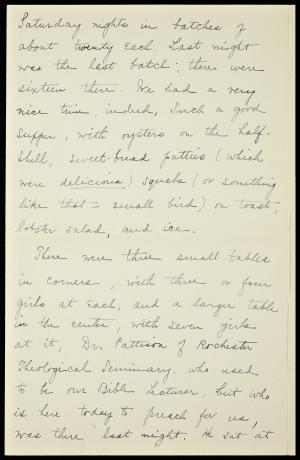 Saturday nights in batches of
about twenty each. Last night
was the last batch; there were
sixteen there. We had a very
nice time, indeed, Such a good
supper, with oysters on the half-
shell, sweet-bread patties (which
were delicious) squabs (or something
like that - small bird) on toast,
lobster salad, and ice.
There were three small tables
in corners, with three or four
girls at each, and a larger table
in the center, with seven girls
at it, Dr. Pattison of Rochester
Theological Seminary, who used
to be our Bible Lecturer, but who
is here today to preach for us,
was there last night. He sat at